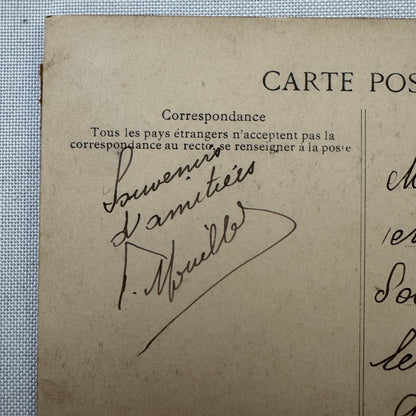 CARTE POS
Correspondance
Tous les pays étrangers n'acceptent pas la
correspondance au recto, se renseigner à la poste
Souvenirs
d'amitiés
M
en
Sou
le